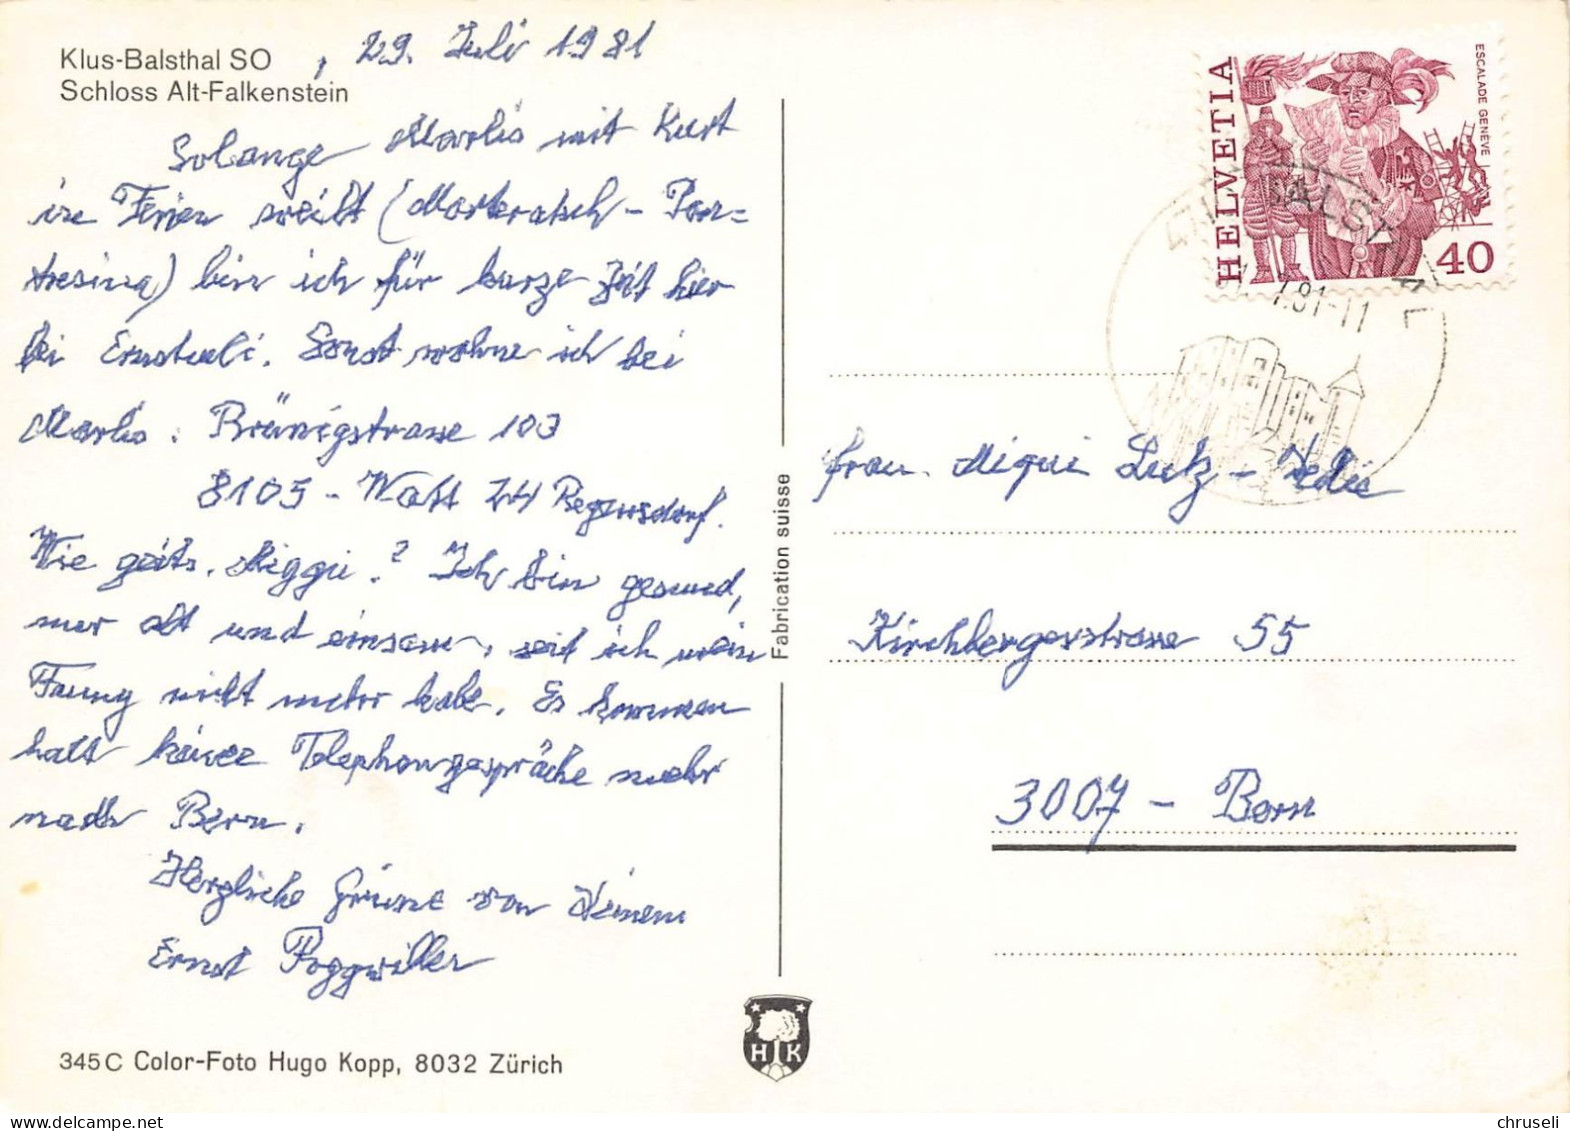 Klus-Balsthal SO , 29. Juli 1981
Schloss Alt-Falkenstein
Solange Marlis mit Kurt
in Ferien weilt (Morteratsch - Pon=
tresina) bin ich für kurze Zeit hier
bei Ernstueli. Sonst wohne ich bei
Marlis. Brünigstrasse 103
8105 - Watt ZH Regensdorf.
Wie gets, Miggi? Ich bin gesund,
nur alt und einsam, seit ich mein
Fanny nicht mehr habe. Es kommen
halt keine Telephongespräche mehr
nach Bern.
Herzliche Grüsse von Deinem
Ernst Poggwiller
345C Color-Foto Hugo Kopp, 8032 Zürich
Fabrication suisse
HK
HELVETIA
ESCALADE GENÈVE
40
BALSTHAL
7.81-11
Frau Miggi Lutz -
Kirchbergerstrasse 55
3007 - Bern
chruseli